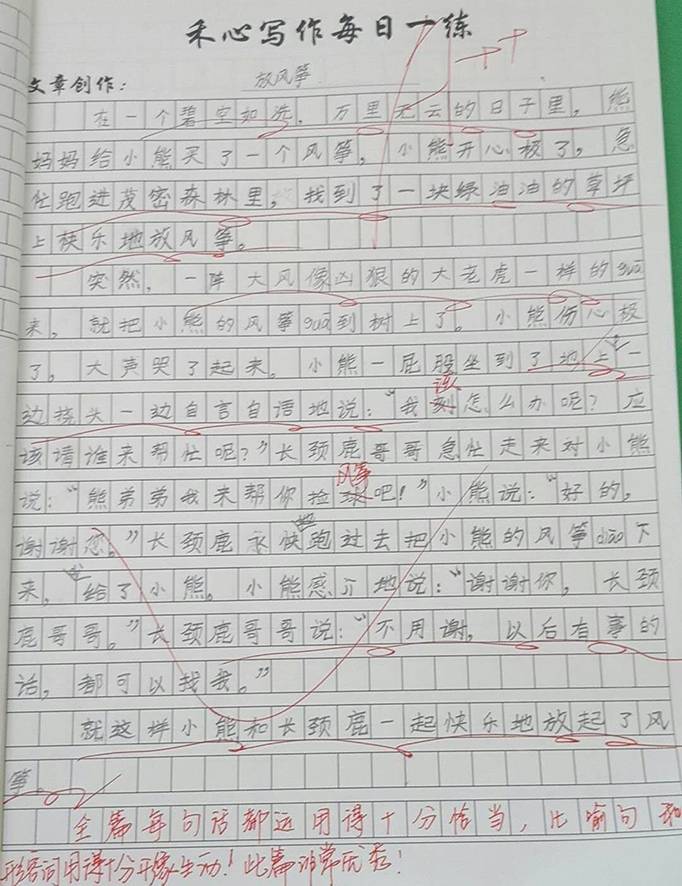 禾心写作每日一练
文章创作：放风筝
在一个碧空如洗，万里无云的日子里，熊
妈妈给小熊买了一个风筝，小熊开心极了，急
忙跑进茂密森林里，找到了一块绿油油的草坪
上快乐地放风筝。
突然，一阵大风像凶狠的大老虎一样的guā
来，就把小熊的风筝guā到树上了。小熊伤心极
了，大声哭了起来。小熊一屁股坐到了地上，一
边挠头一边自言自语地说：“我该怎么办呢？应
该请谁来帮忙呢？”长颈鹿哥哥急忙走来对小熊
说：“熊弟弟我来帮你捡风筝吧！”小熊说：“好的，
谢谢您。”长颈鹿永快地跑过去把小熊的风筝diāo下
来，给了小熊。小熊感地说：“谢谢你，长颈
鹿哥哥。”长颈鹿哥哥说：“不用谢，以后有事的
话，都可以找我。”
就这样小熊和长颈鹿一起快乐地放起了风
筝。
全篇每句话都运用得十分恰当，比喻句和
形容词用得十分形象生动！此篇非常优秀！